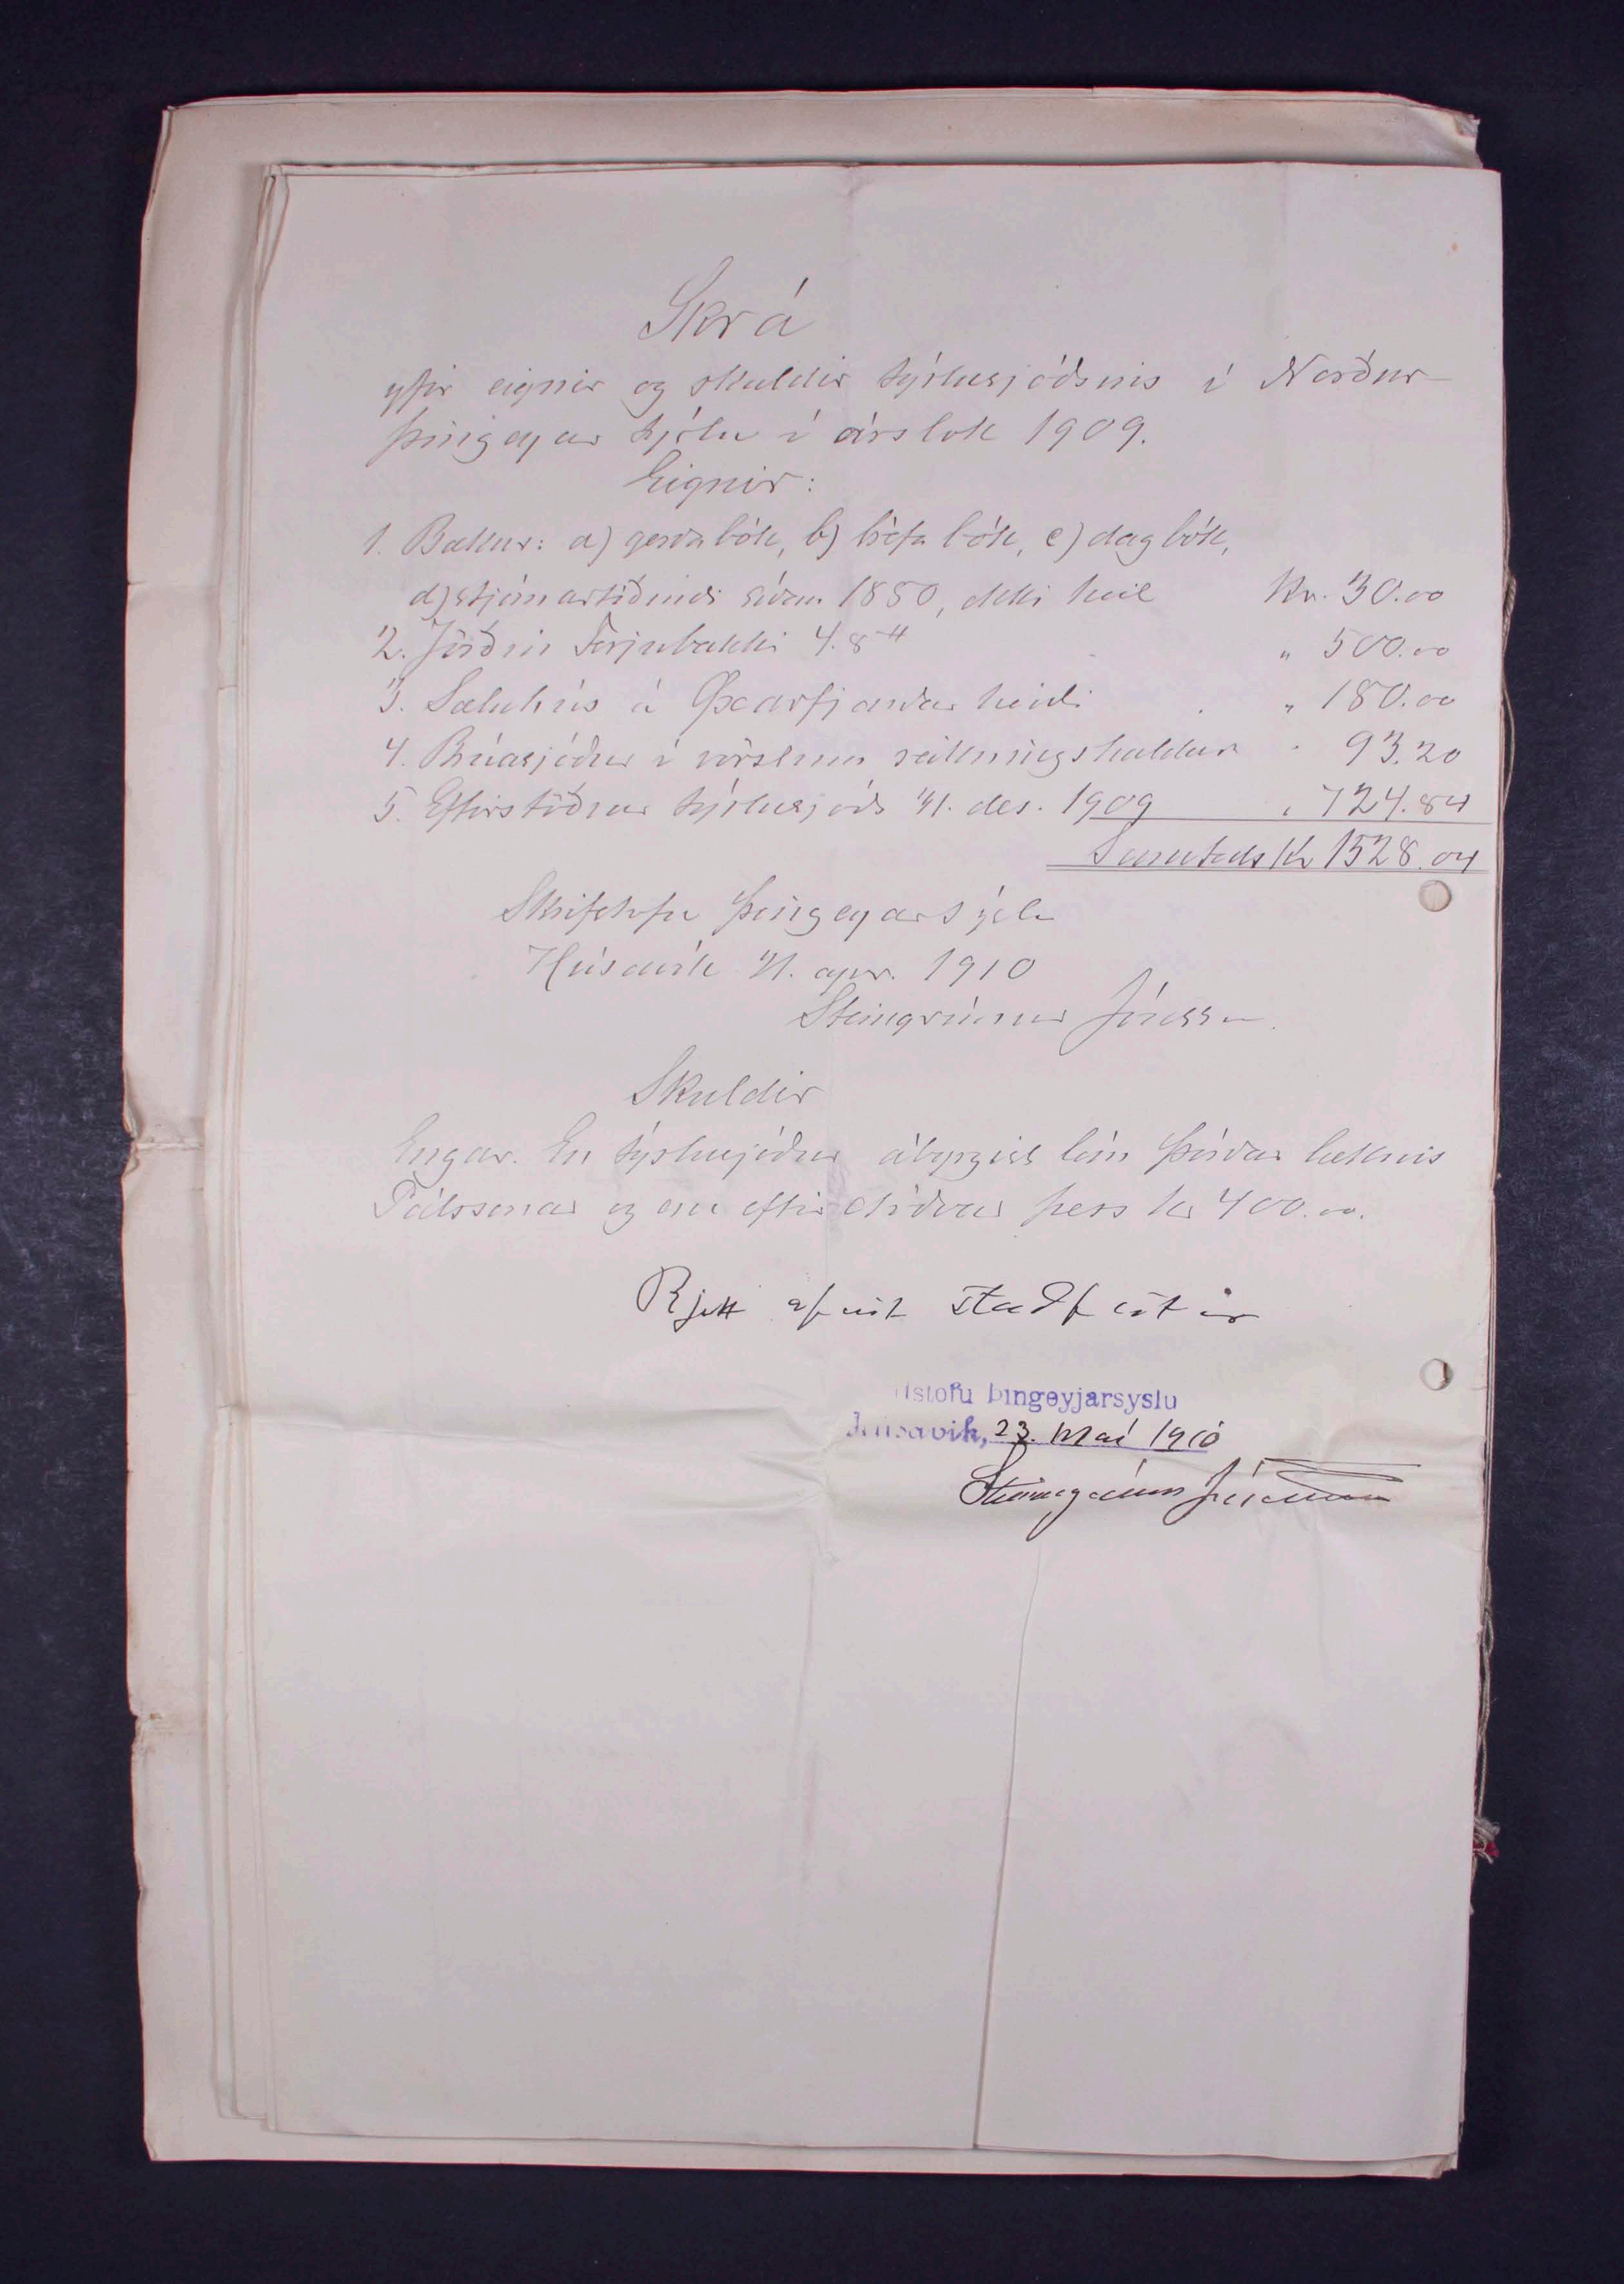 Skrá
yfir eignir og skuldir sýslusjóðsins í Norður-
þingeyar sýslu í árslok 1909.
Eignir:
1. Bækur: a) gerðabók, b) brefa bók, c) dagbók,
d) stjórnartíðindi síðan 1880, ekki heil Kr. 30.00
2. Jörðin Ferjubakki 4.8 " 500.00
3. Sæluhús á Öxarfjarðar heiði " 180.00
4. Búasjóður í vörslum reikningshaldara " 93.20
5. Eftirstöðvar sýslusjóðs 31. des. 1909 " 724.84
Samtals Kr 1528.04
Skrifstofu þingeyarsýslu
Húsavík apr. 1910
Steingrímur Jónsson
Skuldir
Engar. En sýslusjóður ábyrgist lán Þórðar læknis
Pálssonar og eru eftirstöðvar þess kr 400.00.
Rjett afrit staðfestir
stofu Þingeyjarsýslu
Húsavík, 23. Maí 1910
Steingrímur Jónsson